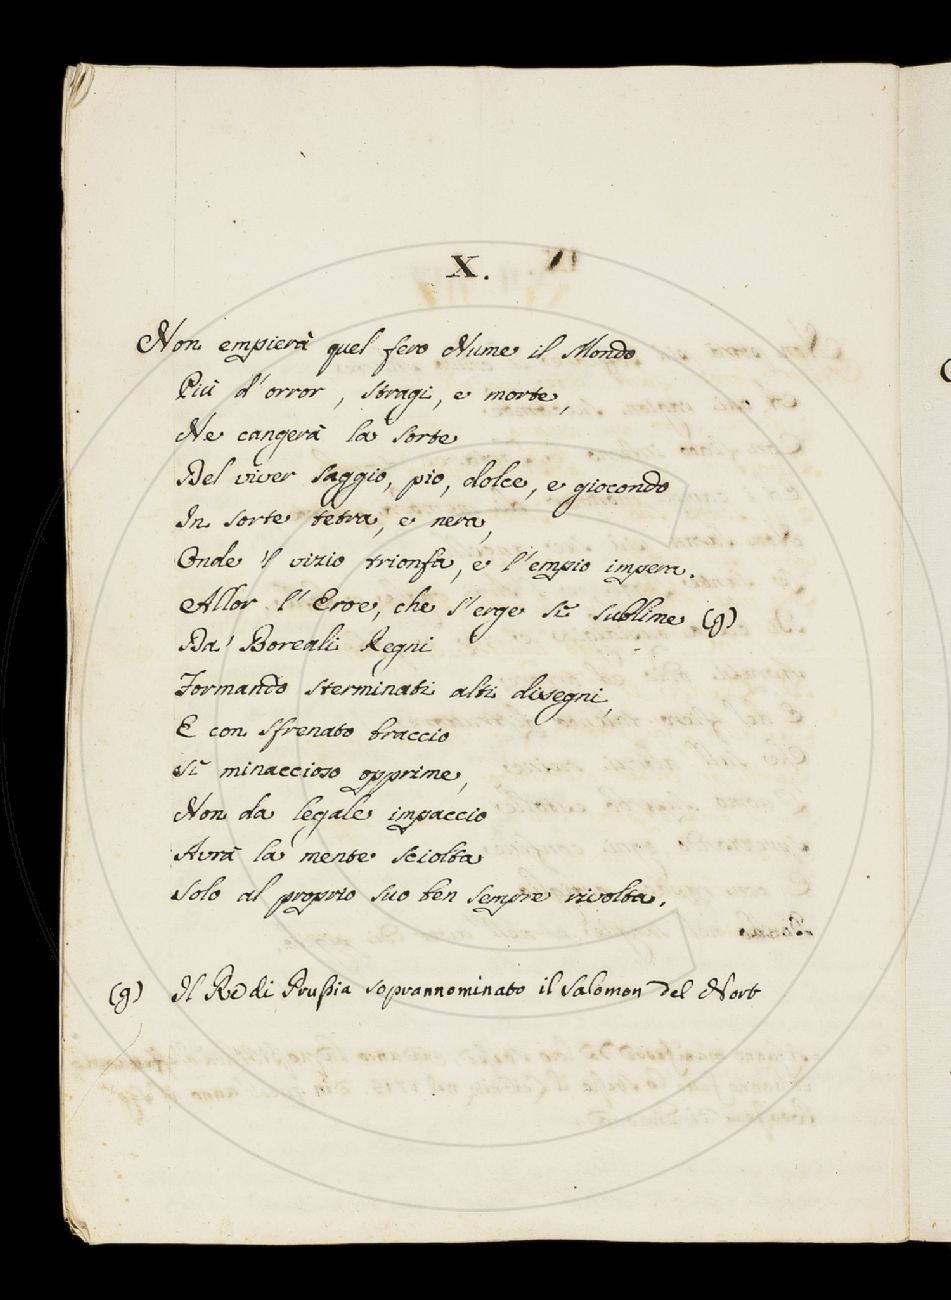 X.
Non empierà quel fero Nume il Mondo
Più d'orror, stragi, e morte,
Ne cangerà la sorte
Del viver saggio, pio, dolce, e giocondo
In sorte tetra, e nera,
Onde il vizio trionfa, e l'empio impera.
Allor l'Eroe, che s'erge sì sublime (g)
Da' Boreali Regni
Formando sterminati alti disegni,
E con sfrenato braccio
Sì minaccioso opprime,
Non da legale impaccio
Avrà la mente sciolta
Solo al proprio suo ben sempre rivolta.
(g) Il Re di Prussia soprannominato il Salomon del Nort